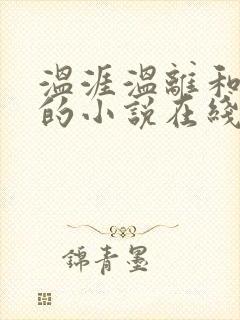 温涯温離和
的小说在綫
錦青墨